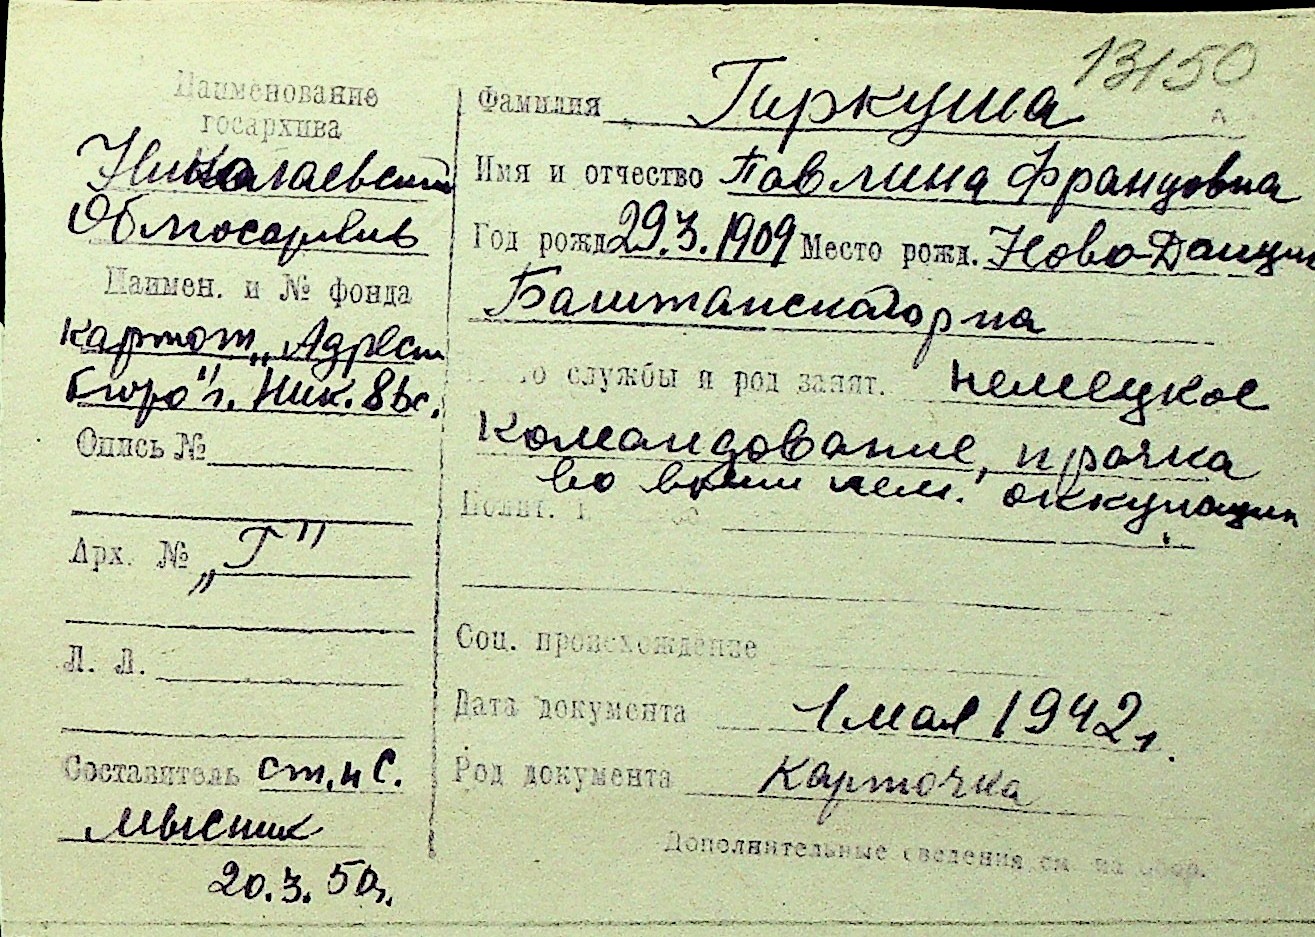 13150
Наименование
госархива
Николаевский
Облгосархив
Наимен. и № фонда
картот. „Адресн
бюро" г. Ник. 8 Вс.
Опись №
Арх. № „Г"
Л. Л.
Составитель ст. н с.
Мысник
20.3.50г.
Фамилия Гиркуша
Имя и отчество Павлина Францовна
Год рожд 29.3.1909 Место рожд. Ново-Данциг
Баштанского р-на
о службы и род занят. немецкое
командование, прачка
во врем нем. оккупации
Полит.
Соц. происхождение
Дата документа 1 мая 1942г.
Род документа Карточка
Дополнительные сведения см на обор.